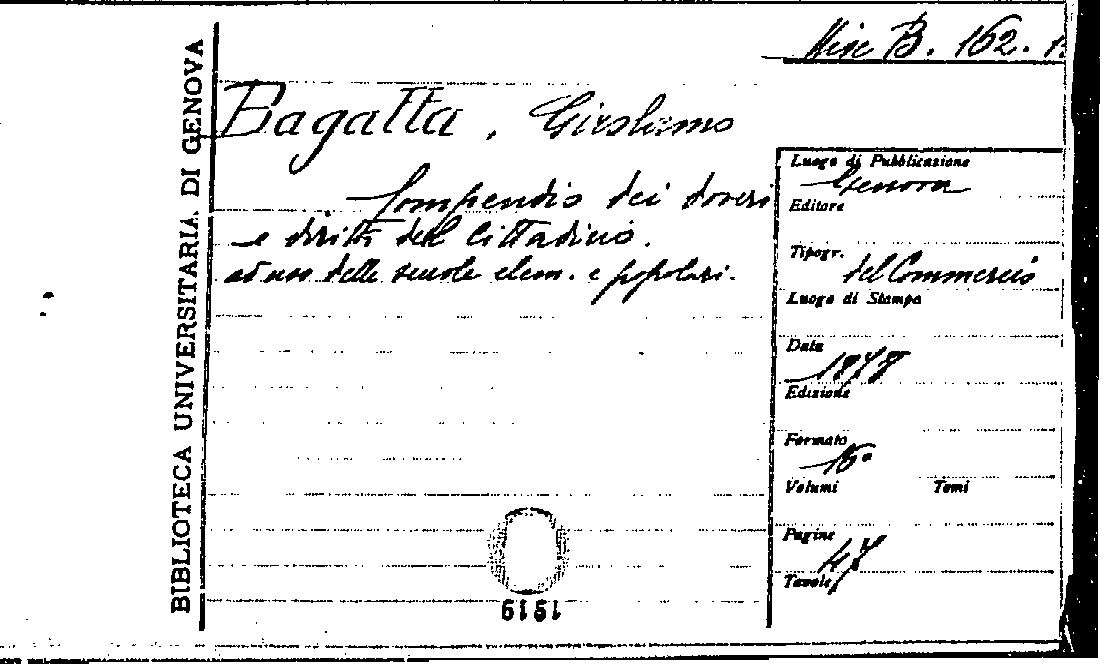 Misc B. 162.
BIBLIOTECA UNIVERSITARIA DI GENOVA
Bagatta, Girolamo
Compendio dei doveri
e diritti del Cittadino.
ad uso delle scuole elem. e popolari.
Luogo di Pubblicazione
Genova
Editore
Tipogr.
del Commercio
Luogo di Stampa
Data
1878
Edizione
Formato
16°
Volumi Tomi
Pagine
47
Tavole
1919